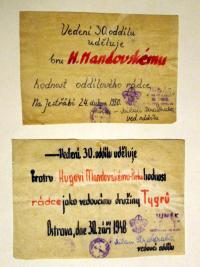 Vedení 30. oddílu
uděluje
bru H. Mandovskému
hodnost oddílového rádce.
Na Jestřábí 24. dubna 1950.
ved. oddílu
Vedení 30. oddílu uděluje
Bratru Hugovi Mandovskému hodnost
rádce jako vedoucímu družiny Tygrů
Ostrava, dne 30. září 1948
JUNÁK
vedoucí oddílu